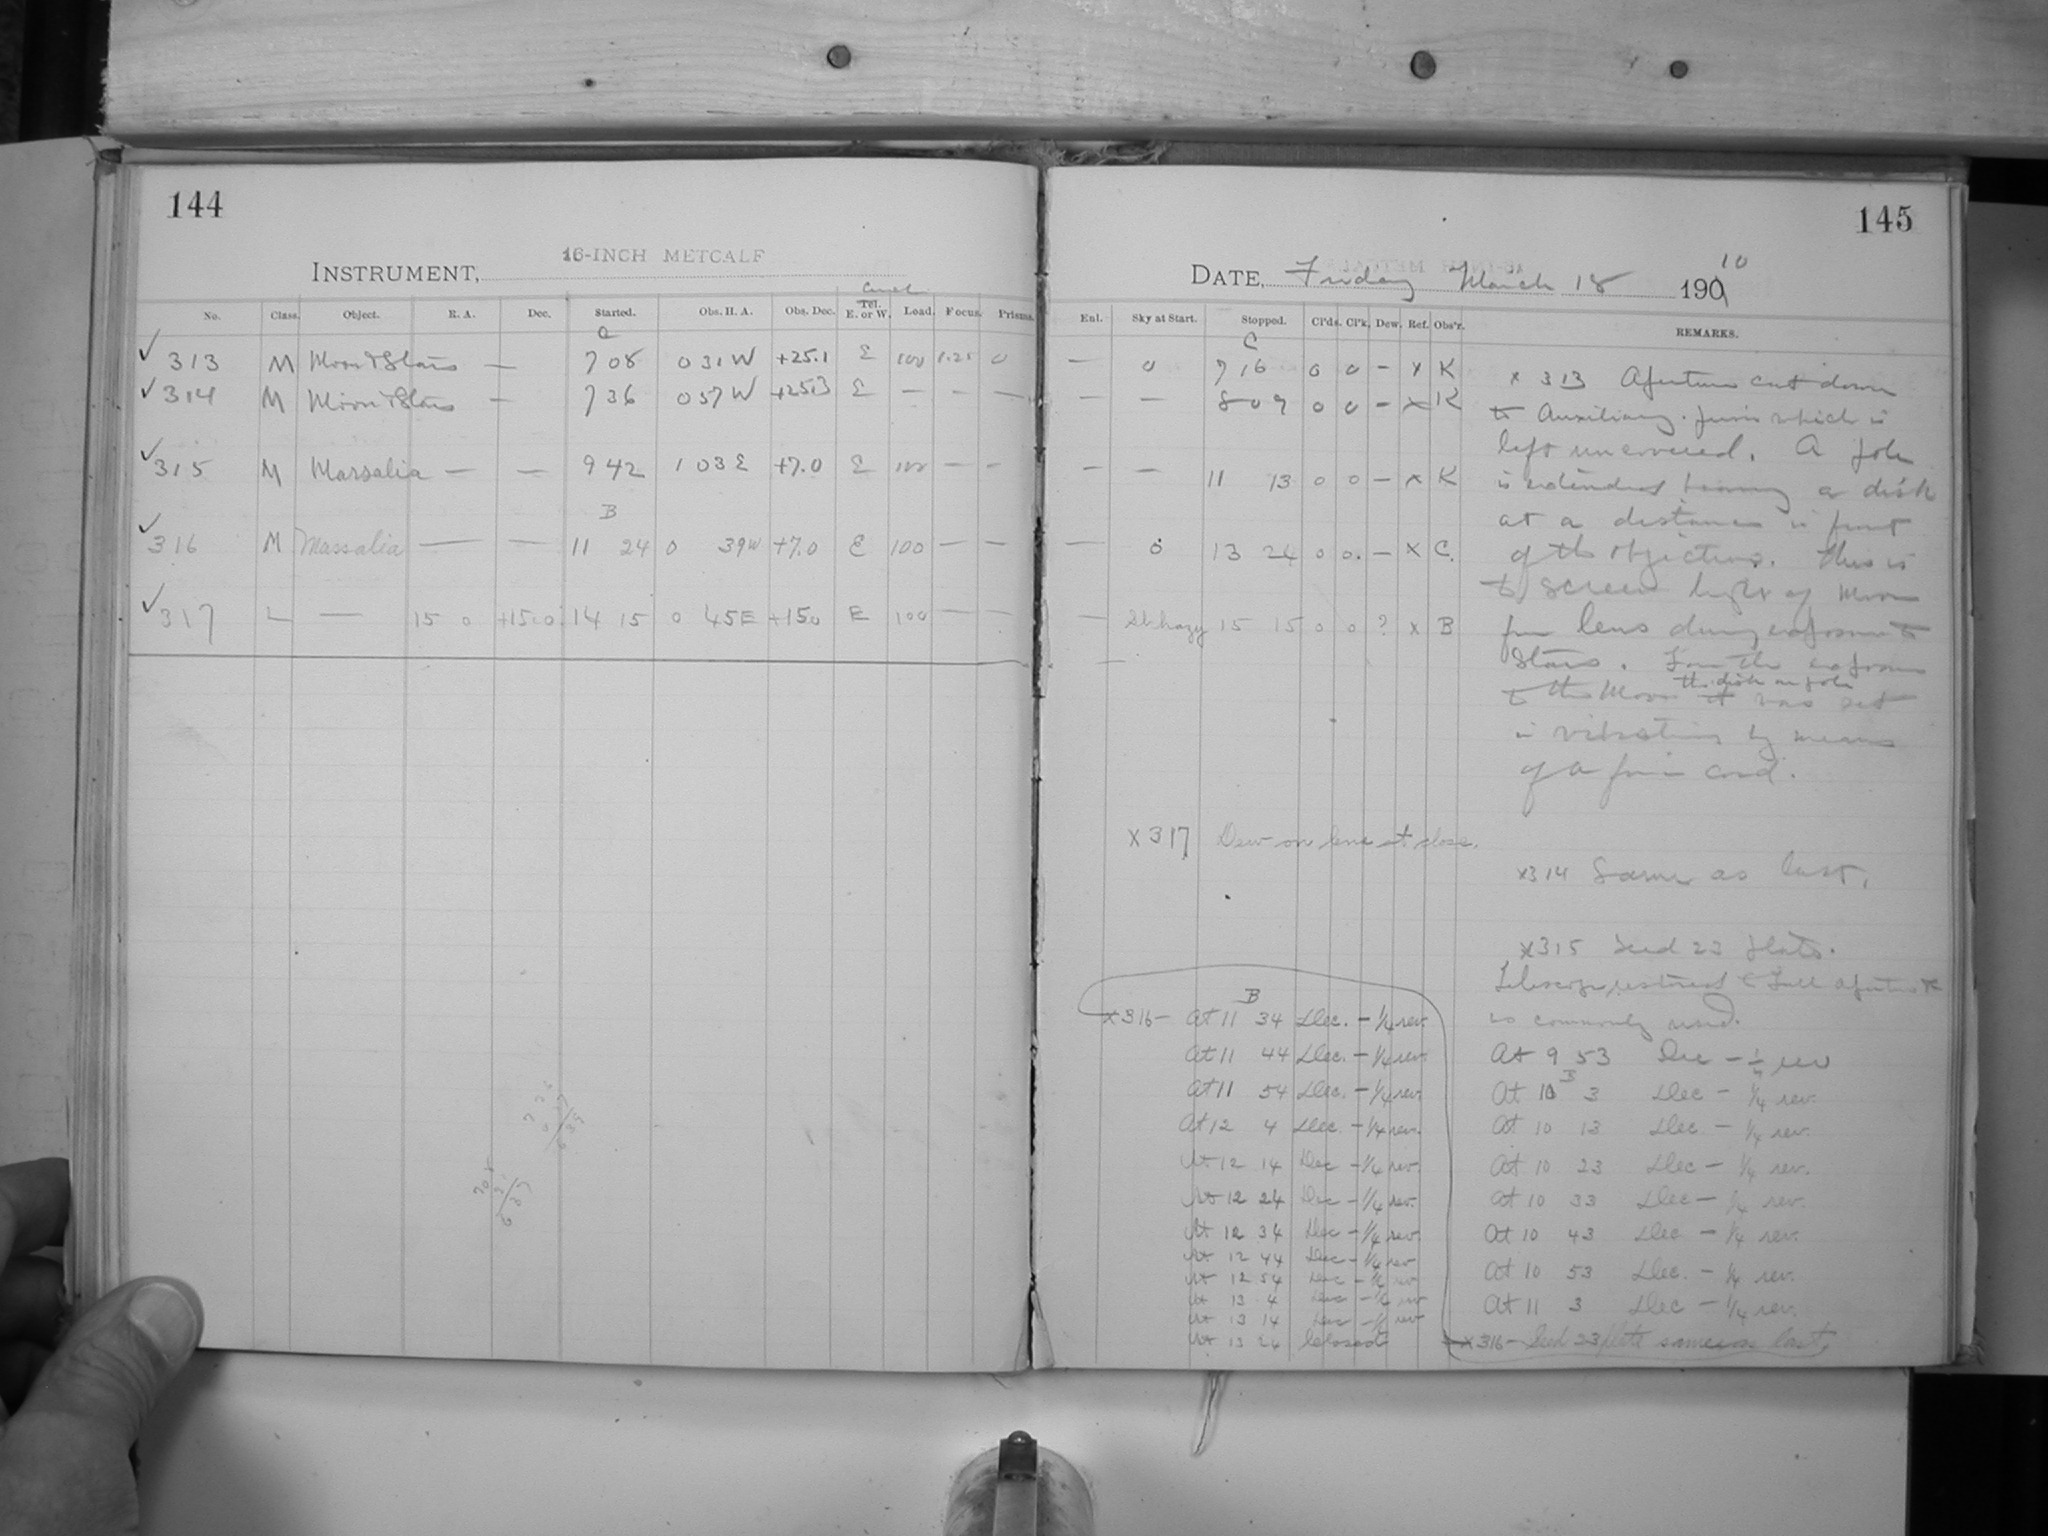 144
16-INCH METCALF
INSTRUMENT,
No. Class. Object. R. A. Dec. Started. Obs. H. A. Obs. Dec. Tel. E. or W. Load. Focus. Prisms.
C
✓ 313 M Moon & Stars — 7 08 0 31 W +25.1 E 100 1.25 0
✓ 314 M Moon & Stars — 7 36 0 57 W +25.3 E — — —
✓ 315 M Massalia — — 9 42 1 03 E +7.0 E 100 — —
B
✓ 316 M Massalia — — 11 24 0 39 W +7.0 E 100 — —
✓ 317 L — 15 0 +15.0 14 15 0 45 E +15.0 E 100 — —
145
DATE, Friday March 18 1910
Enl. Sky at Start. Stopped. Cl'ds. Cl'k. Dew. Ref. Obs'r. REMARKS.
C
— 0 7 16 0 0 — x K
— — 8 09 0 0 — x K
— — 11 13 0 0 — x K
— 0 13 24 0 0. — x C.
— Sl. hazy 15 15 0 0 ? x B
x 313 Aperture cut down
to Auxiliary. which is
left uncovered. A pole
is extended bearing a disk
at a distance in front
of the objective. This is
to screen light of Moon
from lens during exposure to
Stars. For the exposure
to the Moon the disk on pole was set
in vibration by means
of a cord.
x 317 Dew on lens at close.
x314 Same as last.
x315 Seed 23 plate.
Telescope restored to full aperture &
as commonly used.
At 9 53 Dec — 1/4 rev
At 10 3 Dec — 1/4 rev.
At 10 13 Dec. — 1/4 rev.
At 10 23 Dec — 1/4 rev.
At 10 33 Dec — 1/4 rev.
At 10 43 Dec — 1/4 rev.
At 10 53 Dec. — 1/4 rev.
At 11 3 Dec — 1/4 rev.
x316— Seed 23 plate same as last.
B
x316— At 11 34 Dec. — 1/4 rev.
At 11 44 Dec. — 1/4 rev.
At 11 54 Dec. — 1/4 rev.
At 12 4 Dec. — 1/4 rev.
At 12 14 Dec — 1/4 rev
At 12 24 Dec — 1/4 rev.
At 12 34 Dec — 1/4 rev
At 12 44 Dec — 1/4 rev
At 12 54 Dec — 1/4 rev
At 13 4 Dec — 1/4 rev
At 13 14 Dec — 1/4 rev
At 13 24 Closed